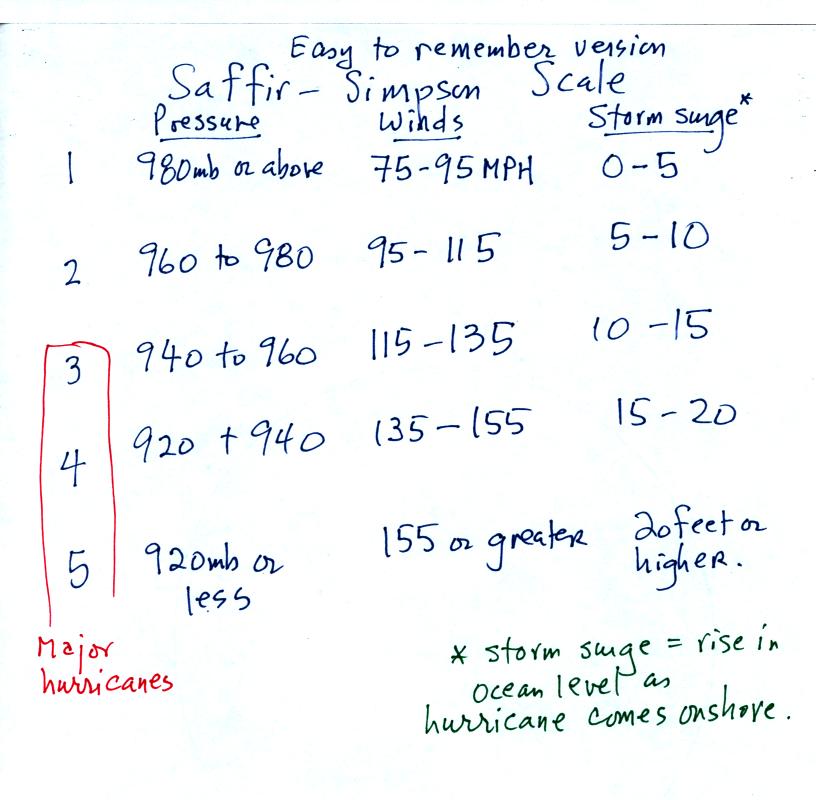 Easy to remember version
Saffir - Simpson Scale
Pressure Winds Storm surge*
1 980mb or above 75-95 MPH 0-5
2 960 to 980 95-115 5-10
3 940 to 960 115-135 10-15
4 920 + 940 135-155 15-20
5 920mb or less 155 or greater 20 feet or higher.
Major
hurricanes
* storm surge = rise in
ocean level as
hurricane comes onshore.